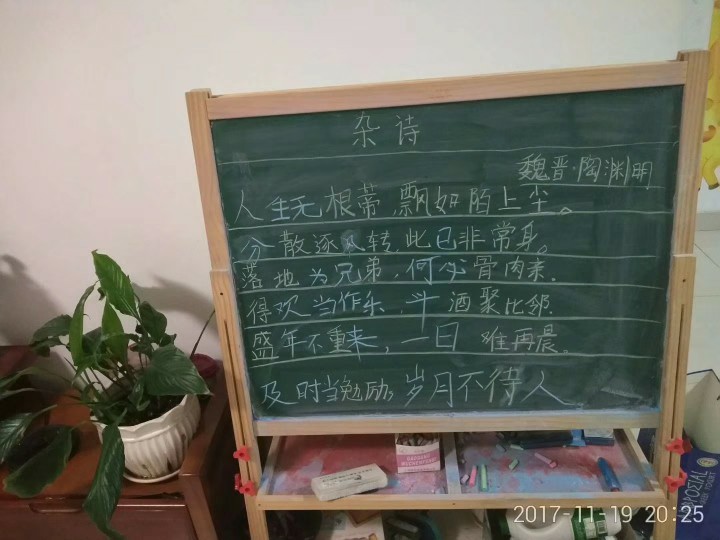 杂诗
魏晋·陶渊明
人生无根蒂,飘如陌上尘。
分散逐风转,此已非常身。
落地为兄弟,何必骨肉亲.
得欢当作乐,斗酒聚比邻.
盛年不重来,一日难再晨.
及时当勉励,岁月不待人
2017-11-19 20:25